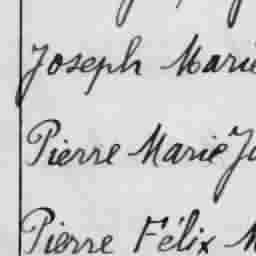 Joseph Marie
Pierre Marie J
Pierre Félix M